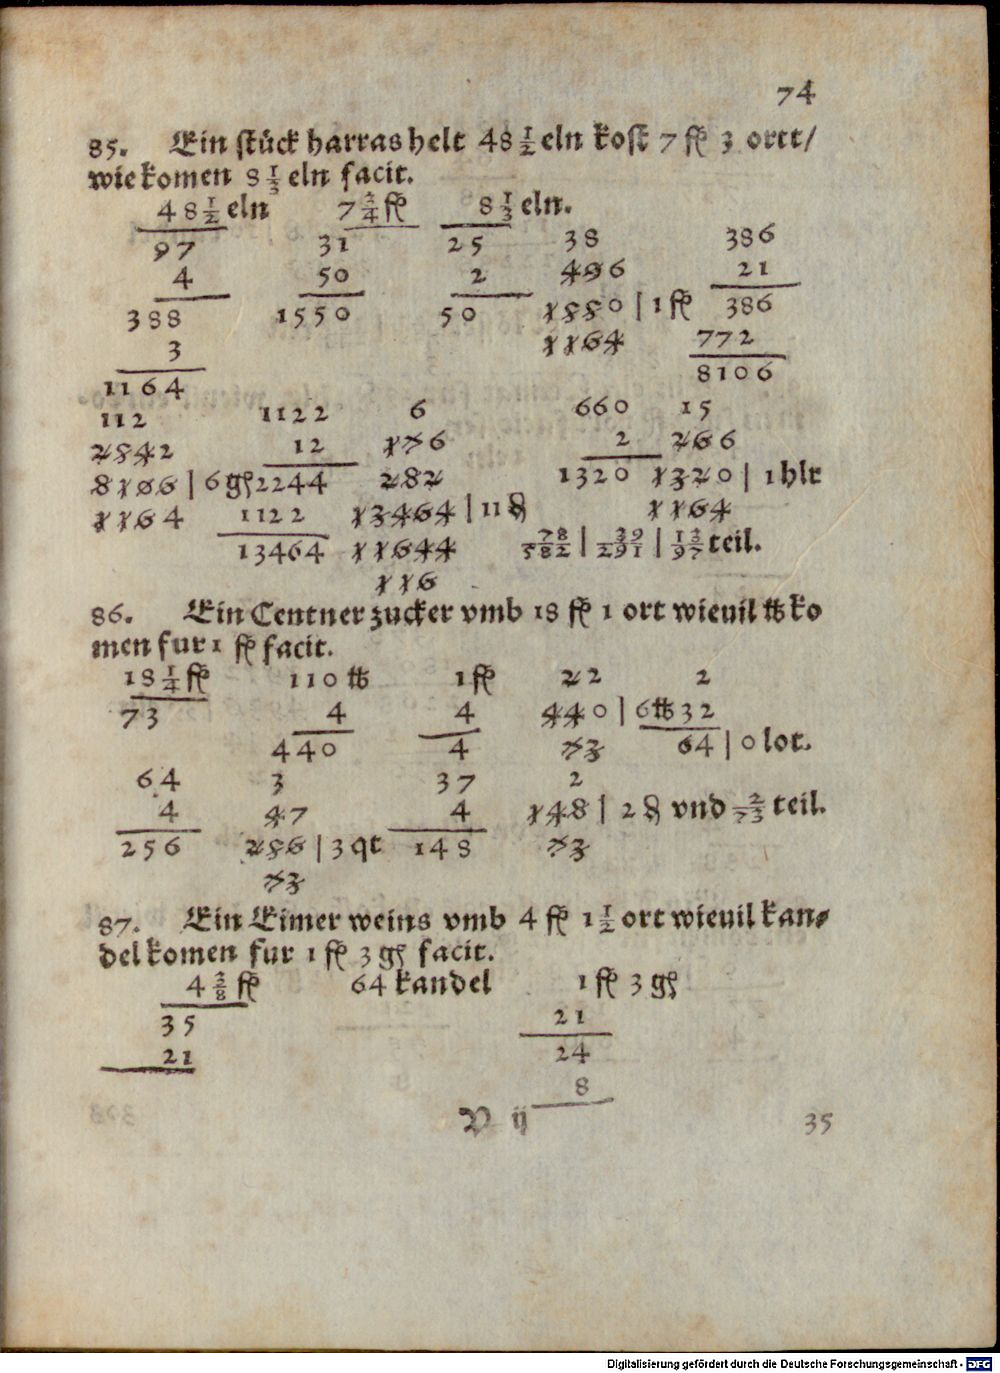 74
85. Ein stück harras helt 48 1/2 eln kost 7 fl 3 ortt/
wie komen 8 1/3 eln facit.
48 1/2 eln 7 3/4 fl 8 1/3 eln.
97 31 25 38 386
4 50 2 496 21
388 1550 50 1550 | 1 fl 386
3 1164 772
1164 8106
112 1122 6 660 15
2842 12 176 2 266
8106 | 6 gſ 2244 282 1320 1320 | 1 hlr
1164 1122 13464 | 11 ₰ 1164
13464 11644 78/582 | 39/291 | 13/97 teil.
116
86. Ein Centner zucker vmb 18 fl 1 ort wieuil ℔ ko
men fur 1 fl facit.
18 1/4 fl 110 ℔ 1 fl 22 2
73 4 4 440 | 6 ℔ 32
440 4 73 64 | 0 lot.
64 3 37 2
4 47 4 148 | 2 ₰ vnd 2/73 teil.
256 256 | 3 qt 148 73
73
87. Ein Eimer weins vmb 4 fl 1 1/2 ort wieuil kan⸗
del komen fur 1 fl 3 gſ facit.
4 3/8 fl 64 kandel 1 fl 3 gſ
35 21
21 24
8
V ij 35
Digitalisierung gefördert durch die Deutsche Forschungsgemeinschaft - DFG